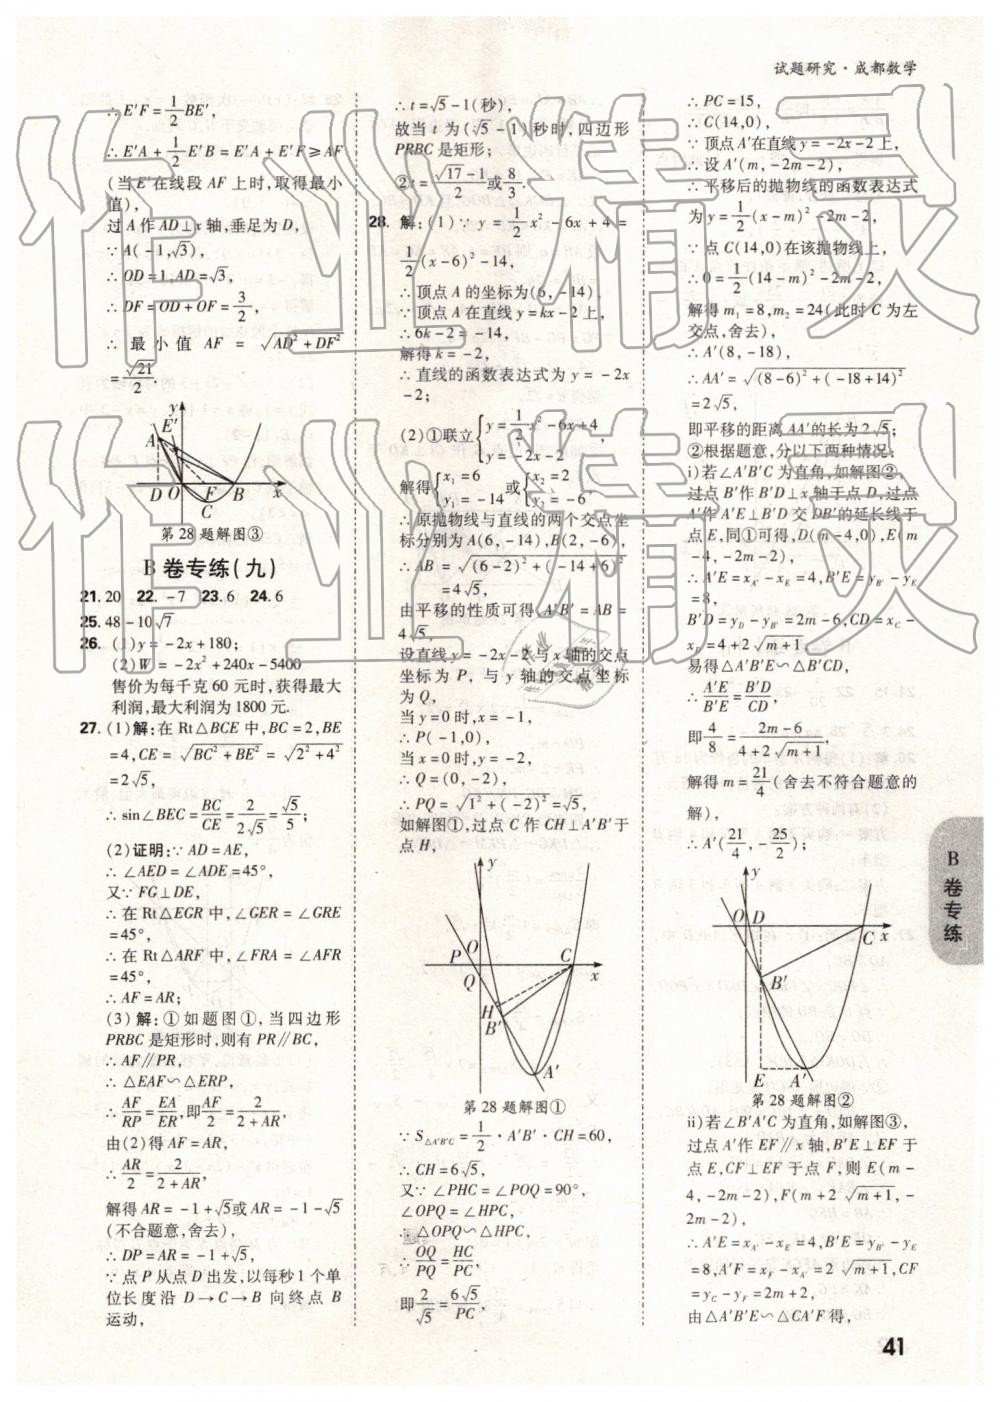 试题研究·成都数学
∴E′F=1/2BE′,
∴E′A+1/2E′B=E′A+E′F≥AF
(当E′在线段AF上时,取得最小
值),
过A作AD⊥x轴,垂足为D,
∵A(-1,√3),
∴OD=1,AD=√3,
∴DF=OD+OF=3/2,
∴最小值AF=√(AD²+DF²)
=√21/2.
y
E′
A
D
O
F
B
x
C
第28题解图③
B卷专练(九)
21.20 22.-7 23.6 24.6
25.48-10√7
26.(1)y=-2x+180;
(2)W=-2x²+240x-5400
售价为每千克60元时,获得最大
利润,最大利润为1800元.
27.(1)解:在Rt△BCE中,BC=2,BE
=4,CE=√(BC²+BE²)=√(2²+4²)
=2√5,
∴sin∠BEC=BC/CE=2/(2√5)=√5/5;
(2)证明:∵AD=AE,
∴∠AED=∠ADE=45°,
又∵FG⊥DE,
∴在Rt△EGR中,∠GER=∠GRE
=45°,
∴在Rt△ARF中,∠FRA=∠AFR
=45°,
∴AF=AR;
(3)解:①如题图①,当四边形
PRBC是矩形时,则有PR∥BC,
∴AF∥PR,
∴△EAF∽△ERP,
∴AF/RP=EA/ER,即AF/2=2/(2+AR),
由(2)得AF=AR,
∴AR/2=2/(2+AR),
解得AR=-1+√5或AR=-1-√5
(不合题意,舍去),
∴DP=AR=-1+√5,
∵点P从点D出发,以每秒1个单
位长度沿D→C→B向终点B
运动,
∴t=√5-1(秒),
故当t为(√5-1)秒时,四边形
PRBC是矩形;
②t=(√17-1)/2或8/3.
28.解:(1)∵y=1/2x²-6x+4=
1/2(x-6)²-14,
∴顶点A的坐标为(6,-14).
∵顶点A在直线y=kx-2上,
∴6k-2=-14,
解得k=-2,
∴直线的函数表达式为y=-2x
-2;
(2)①联立{y=1/2x²-6x+4, y=-2x-2,
解得{x₁=6 y₁=-14或{x₂=2 y₂=-6,
∴原抛物线与直线的两个交点坐
标分别为A(6,-14),B(2,-6),
∴AB=√((6-2)²+(-14+6)²)
=4√5,
由平移的性质可得A′B′=AB=
4√5,
设直线y=-2x-2与x轴的交点
坐标为P,与y轴的交点坐标
为Q,
当y=0时,x=-1,
∴P(-1,0),
当x=0时,y=-2,
∴Q=(0,-2),
∴PQ=√(1²+(-2)²)=√5,
如解图①,过点C作CH⊥A′B′于
点H,
y
P
O
Q
C
x
H
B′
A′
第28题解图①
∵S△A′B′C=1/2·A′B′·CH=60,
∴CH=6√5,
又∵∠PHC=∠POQ=90°,
∠OPQ=∠HPC,
∴△OPQ∽△HPC,
∴OQ/PQ=HC/PC,
即2/√5=6√5/PC,
∴PC=15,
∴C(14,0),
∵顶点A′在直线y=-2x-2上,
∴设A′(m,-2m-2),
∴平移后的抛物线的函数表达式
为y=1/2(x-m)²-2m-2,
∵点C(14,0)在该抛物线上,
∴0=1/2(14-m)²-2m-2,
解得m₁=8,m₂=24(此时C为左
交点,舍去),
∴A′(8,-18),
∴AA′=√((8-6)²+(-18+14)²)
=2√5,
即平移的距离AA′的长为2√5;
②根据题意,分以下两种情况:
i)若∠A′B′C为直角,如解图②,
过点B′作B′D⊥x轴于点D,过点
A′作A′E⊥B′D交DB′的延长线于
点E,同①可得,D(m-4,0),E(m
-4,-2m-2),
∴A′E=xA′-xE=4,B′E=yB′-yE
=8,
B′D=yD-yB′=2m-6,CD=xC-
xF=4+2√(m+1),
易得△A′B′E∽△B′CD,
∴A′E/B′E=B′D/CD,
即4/8=(2m-6)/(4+2√(m+1)),
解得m=21/4(舍去不符合题意的
解),
∴A′(21/4,-25/2);
y
O
D
C
x
B′
E
A′
第28题解图②
ii)若∠B′A′C为直角,如解图③,
过点A′作EF∥x轴,B′E⊥EF于
点E,CF⊥EF于点F,则E(m-
4,-2m-2),F(m+2√(m+1),-
2m-2),
∴A′E=xA′-xE=4,B′E=yB′-yE
=8,A′F=xF-xA′=2√(m+1),CF
=yC-yF=2m+2,
由△A′B′E∽△CA′F得,
B卷专练
41
作业精灵
作业精灵